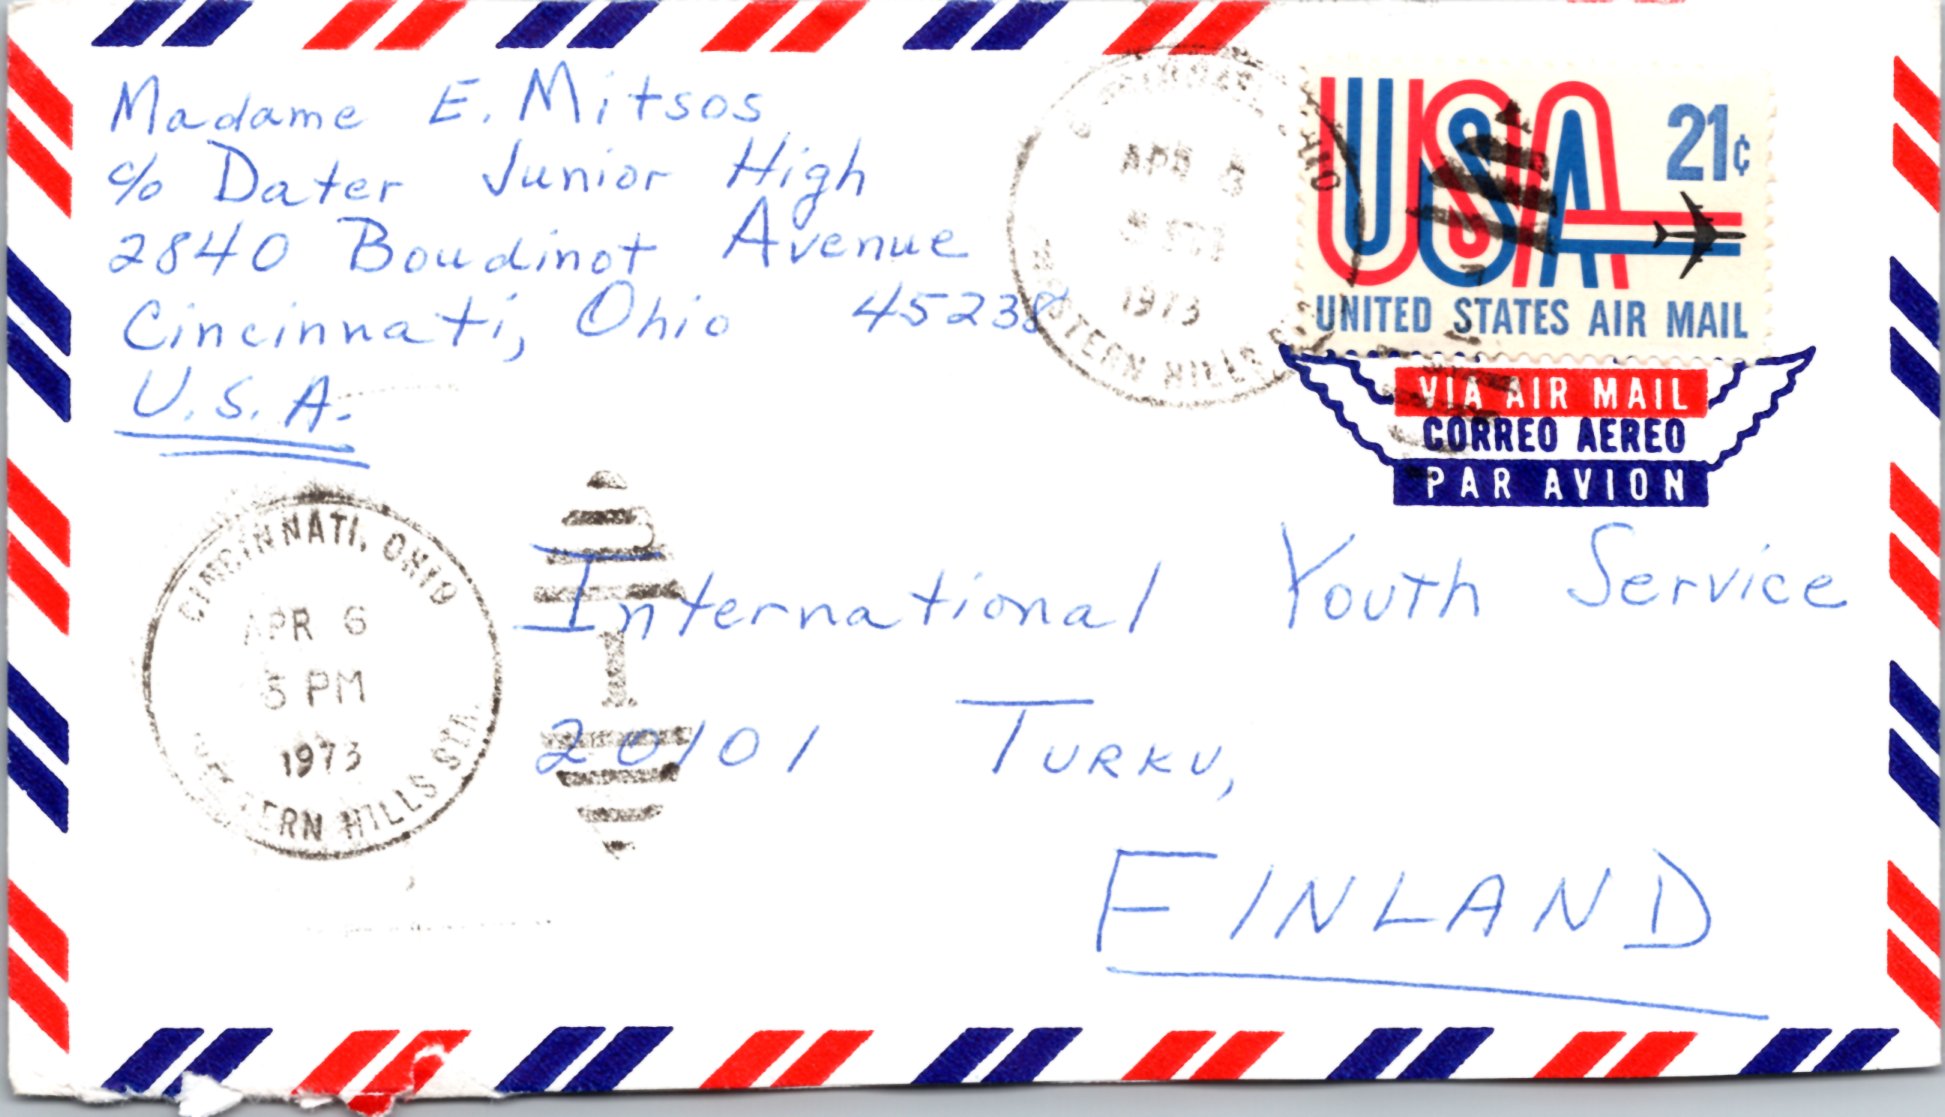 Madame E. Mitsos
c/o Dater Junior High
2840 Boudinot Avenue
Cincinnati, Ohio 45238
U.S.A.
APR
1973
WESTERN HILLS
USA
21¢
UNITED STATES AIR MAIL
VIA AIR MAIL
CORREO AEREO
PAR AVION
CINCINNATI, OHIO
APR 6
5 PM
1973
WESTERN HILLS STA.
International Youth Service
20101 TURKU,
FINLAND